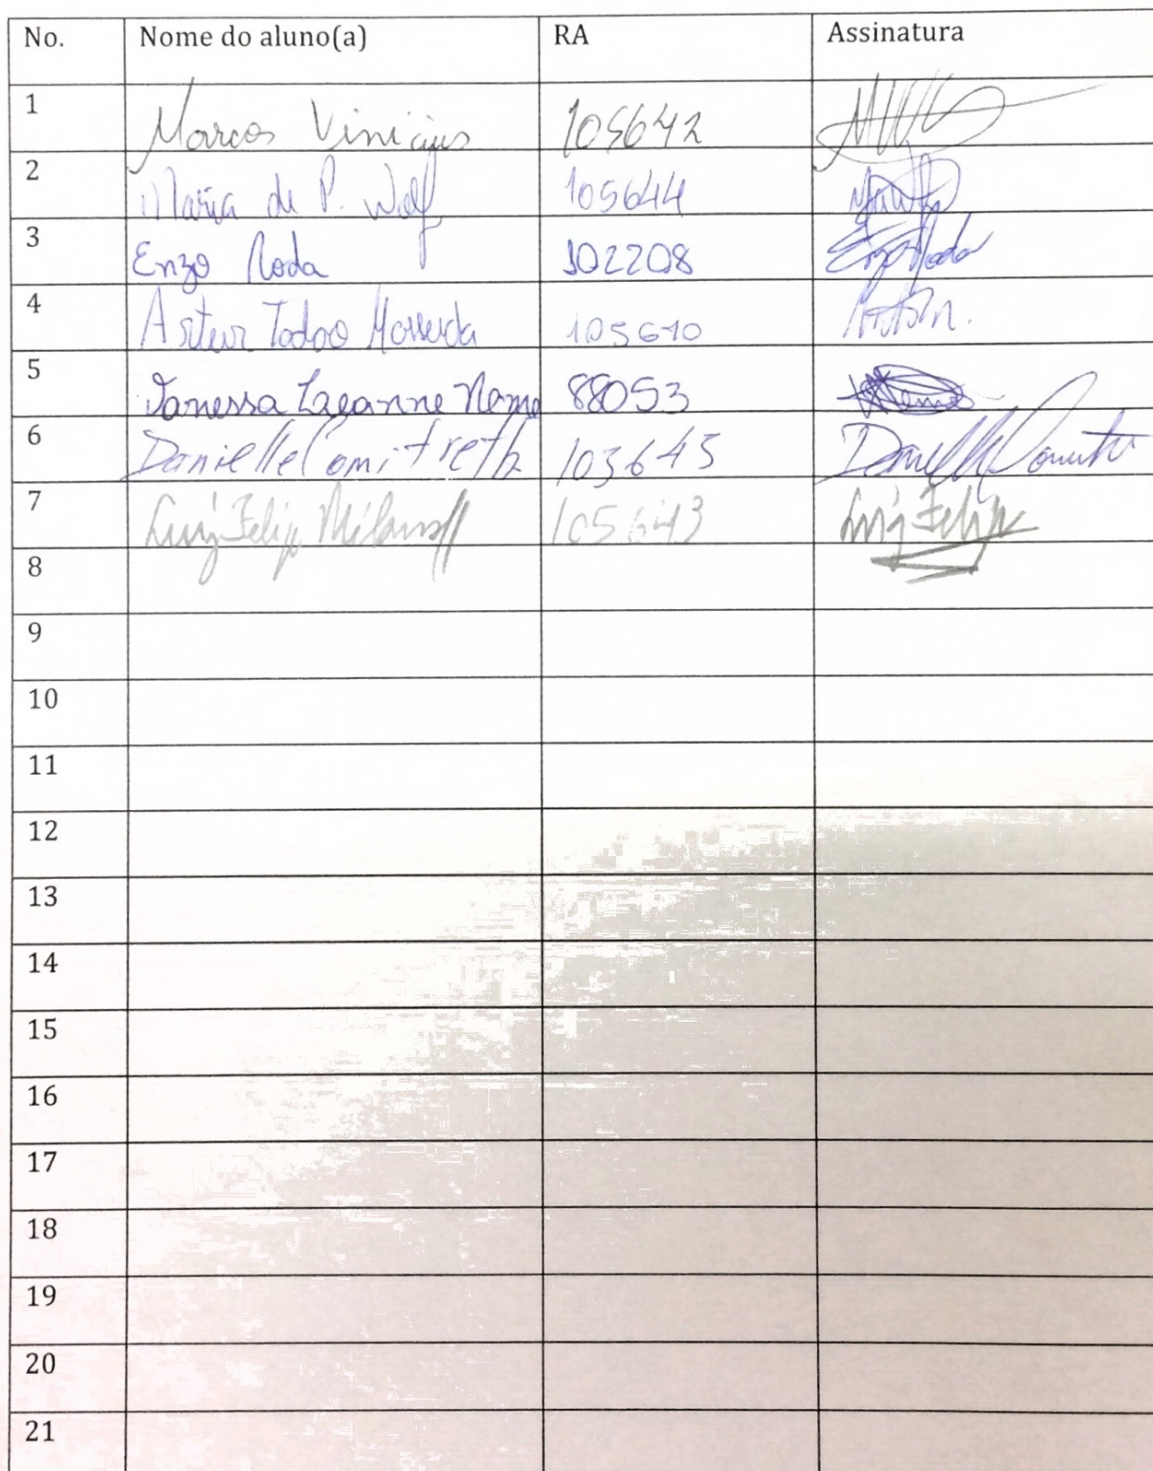 No. Nome do aluno(a) RA Assinatura
1 Marcos Vinicius 105642
2 Maria de P. Wolf 105644
3 Enzo Roda 102208 Enzo Roda
4 Artur Tadao 105610
5 Vanessa 88053
6 Danielle 103645 Danielle
7 Luiz Felipe 105643 Luiz Felipe
8
9
10
11
12
13
14
15
16
17
18
19
20
21